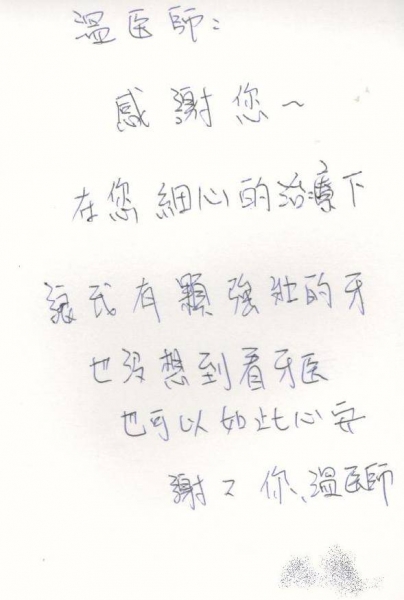 溫医師：
感謝您~
在您細心的治療下
讓我有顆強壯的牙
也沒想到看牙医
也可以如此心安
謝々你、溫医師